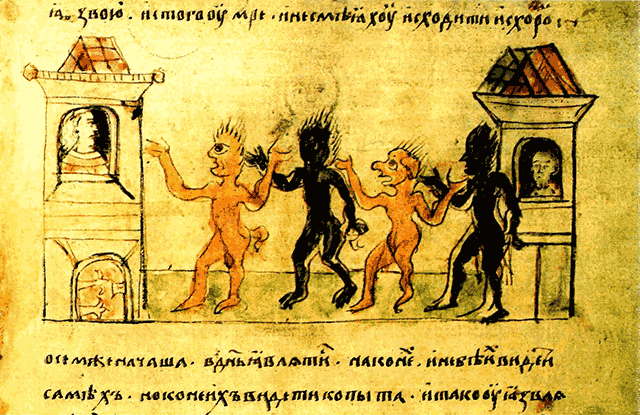 ꙗзвою . и с того оумре . и не смѣꙗхоу исходити ис хоро
по семже начаша . в дн҃ь ꙗвлѧтис . на коне . и не бѣ и видѣти
самѣхъ . но конеи ихъ видети копыта . и тако оуꙗзвлѧ